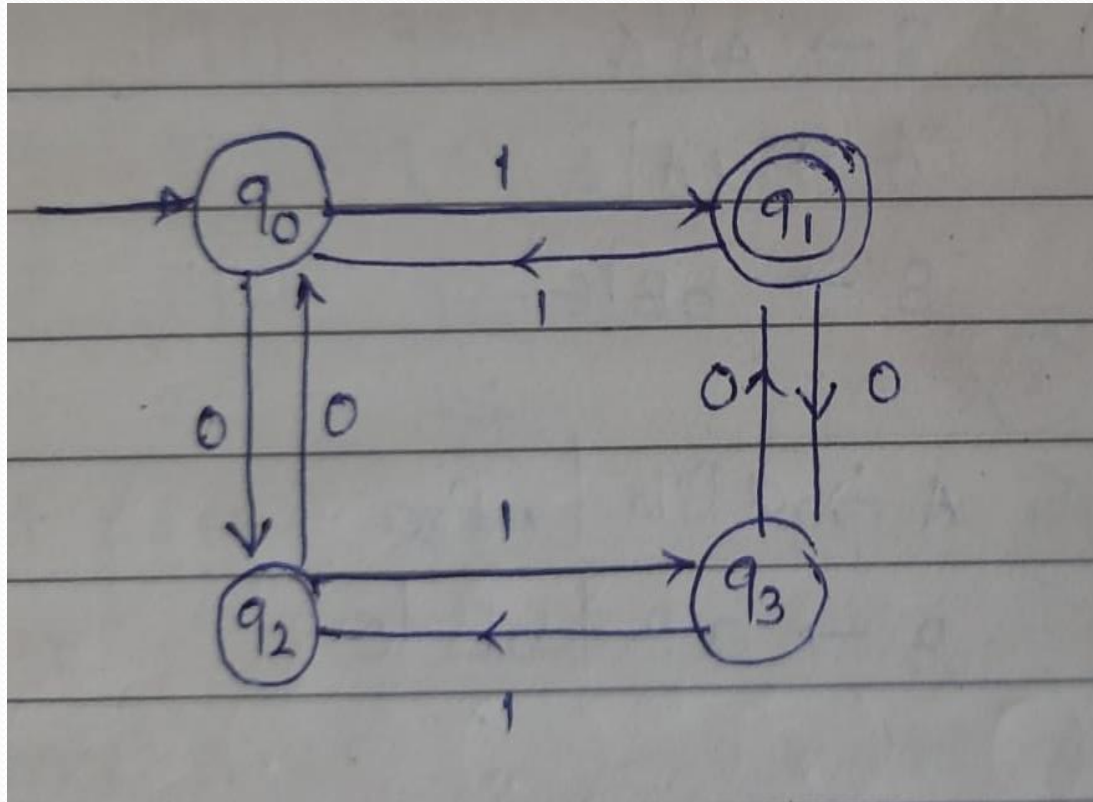 q0 1 q1
1
0 0 0 0
1
q2 q3
1